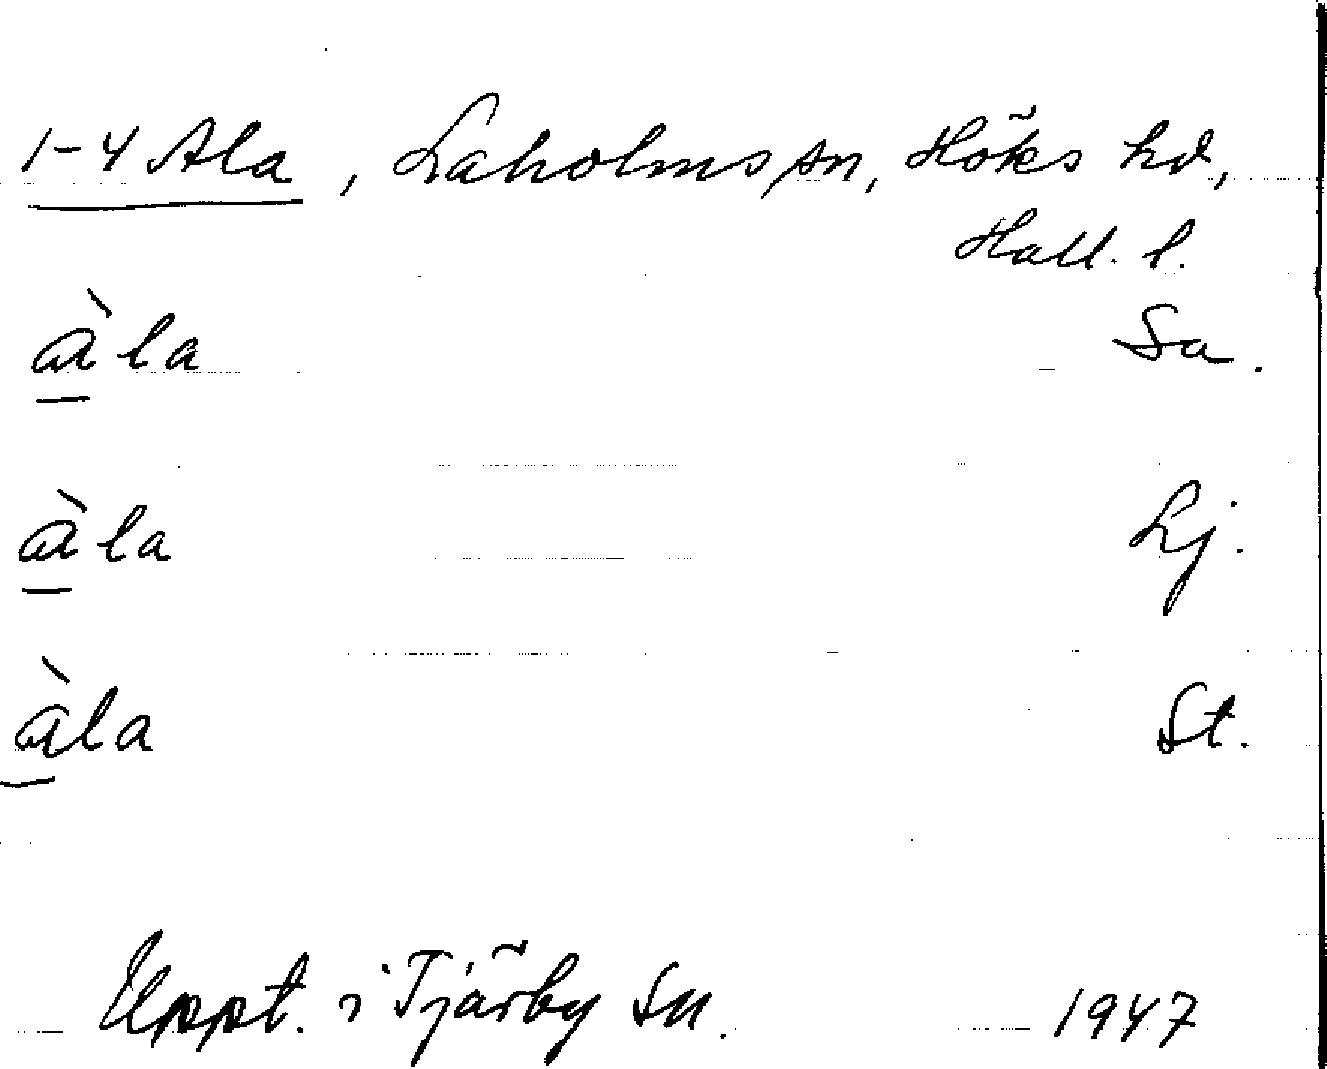 1-4 Ala, Laholms sn, Höks hd,
Hall. l.
àla Sa.
àla Lj.
àla St.
Uppt. i Tjärby sn. 1947